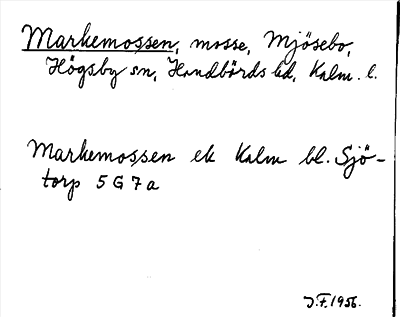 Markemossen, mosse, Mjösebo,
Högsby sn, Handbörds hd, Kalm. l.
Markemossen ek Kalm bl. Sjö-
torp 5 G 7 a
J.F. 1956.